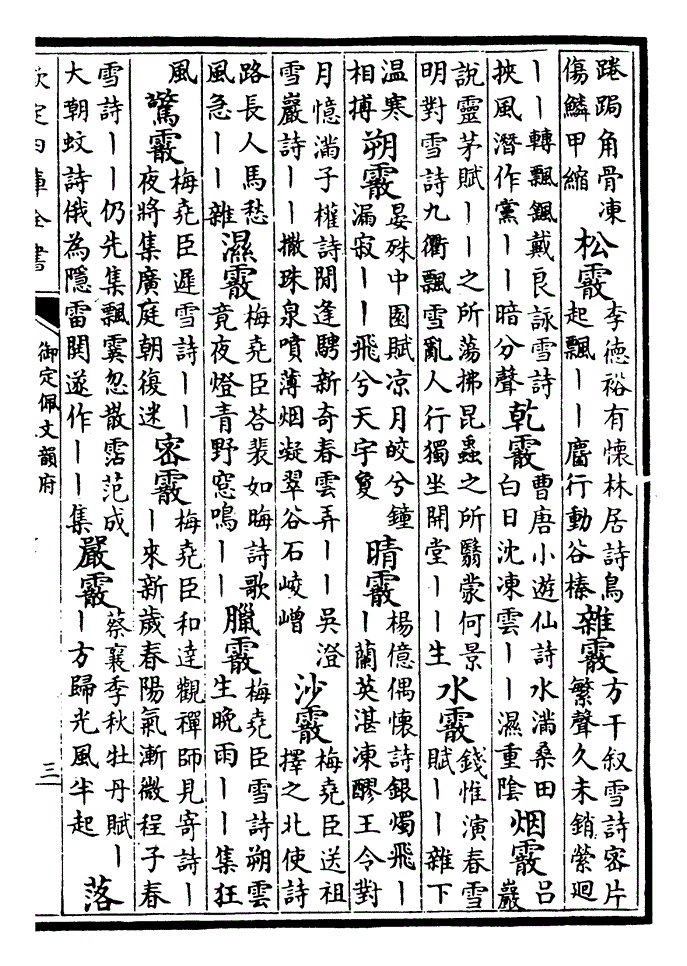 踡跼角骨凍
傷鱗甲縮
松霰
李德裕有懷林居詩鳥
起飄丨丨麏行動谷榛
雜霰
方干叙雪詩密片
繁聲久未銷縈廻
丨丨轉飄颻戴良詠雪詩
挾風潛作黨丨丨暗分聲
乾霰
曹唐小遊仙詩水滿桑田
白日沈凍雲丨丨濕重陰
烟霰
吕
巖
說靈茅賦丨丨之所蕩拂昆蟲之所翳蒙何景
明對雪詩九衢飄雪亂人行獨坐開堂丨丨生
水霰
錢惟演春雪
賦丨丨雜下
温寒
相搏
朔霰
晏殊中園賦凉月皎兮鐘
漏寂丨丨飛兮天宇夐
晴霰
楊億偶懷詩銀燭飛丨
丨蘭英湛凍醪王令對
月憶滿子權詩閒逢騁新奇春雲弄丨丨吳澄
雪巖詩丨丨撒珠泉噴薄烟凝翠谷石崚嶒
沙霰
梅堯臣送祖
擇之北使詩
路長人馬愁
風急丨丨雜
濕霰
梅堯臣荅裴如晦詩歌
竟夜燈青野窓鳴丨丨
臘霰
梅堯臣雪詩朔雲
生晚雨丨丨集狂
風
驚霰
梅堯臣遲雪詩丨丨
夜將集廣庭朝復迷
密霰
梅堯臣和達觀禪師見寄詩丨
丨來新歲春陽氣漸微程子春
雪詩丨丨仍先集飄霙忽散霑范成
大朝蚊詩俄為隱雷閧遂作丨丨集
嚴霰
蔡襄季秋牡丹賦丨
丨方歸光風半起
落
欽定四庫全書
御定佩文韻府
三